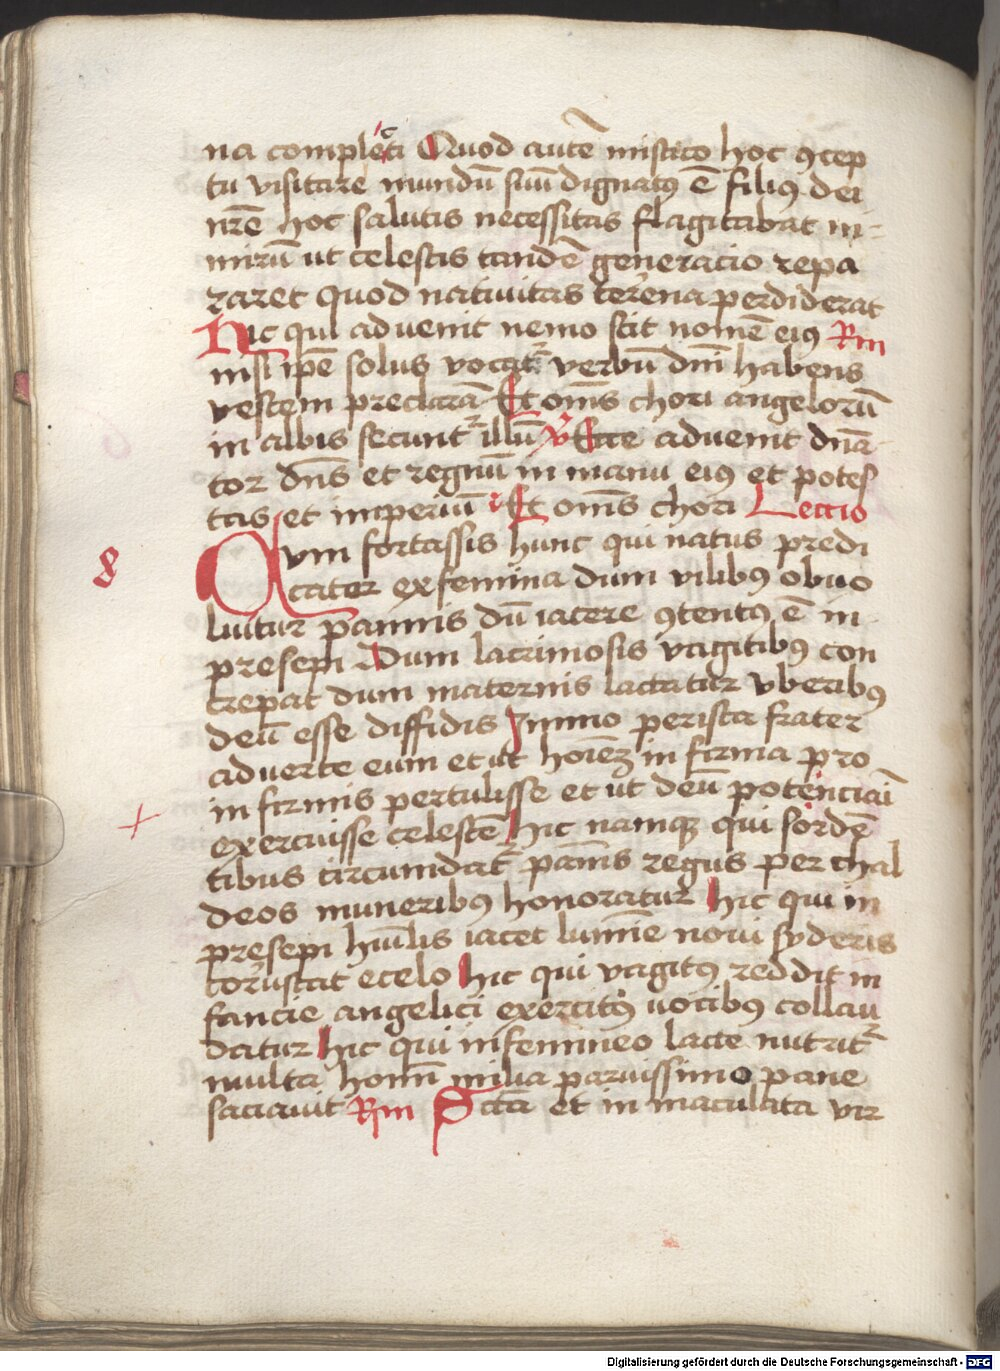 na complecti Quod autē mistico hoc ꝯcep
tu visitare mundū suū dignatꝰ ē filiꝰ dei
nr̄e hoc salutis necessitas flagitabat ni-
mirū ut celestis tandē generacio repa
raret quod nativitas terrena perdiderat
Hic qui advenit nemo scit nomē eiꝰ Rm
nisi ip̄e solus vocatr̉ verbū dn̄i habens
vestem preclarā Et om̄s chori angelorū
in albis secuntr̉ illū v̉ Ecce advenit dn̄a
tor dn̄s et regnū in manu eiꝰ et potes
tas et imperiū Et om̄s chori Lectio
8
Qum fortassis hunc qui natus predi
catur ex femina dum vilibꝰ obuo
luitur pannis dū iacere ꝯtentꝰ ē in-
presepi Dum lacrimosis vagitibꝰ con
crepat dum maternis lactatur vberibꝰ
deū esse diffidis ymmo perista frater
adverte eum et ut hoiēꝫ in firma pro
in firmis pertulisse et ut deū potenciaī
exercuisse celestē hic namqꝫ qui sordē
tibus circumdatr̉ pānis regiis per chal
deos muneribꝰ honoratur hic qui in
presepi hūilis iacet lumīe novi syderis
coruscat e celo hic qui vagitꝰ reddit in
fancie angelici exercitꝰ uocibꝰ collau
datur hic qui in femineo lacte nutritr̉
multa homī milia paruissimo pane
saciavit Rm Sctā et in maculata vir
Digitalisierung gefördert durch die Deutsche Forschungsgemeinschaft - DFG